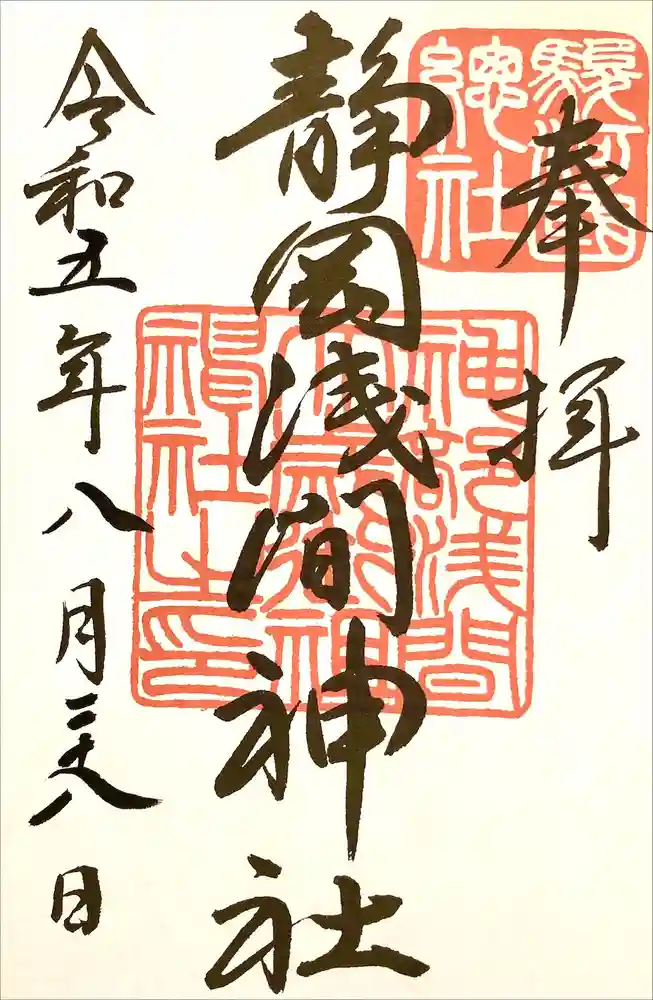 駿河國
總社
奉拝
静岡浅間神社
神部浅間
大歳御祖
神社之印
令和五年八月二十八日